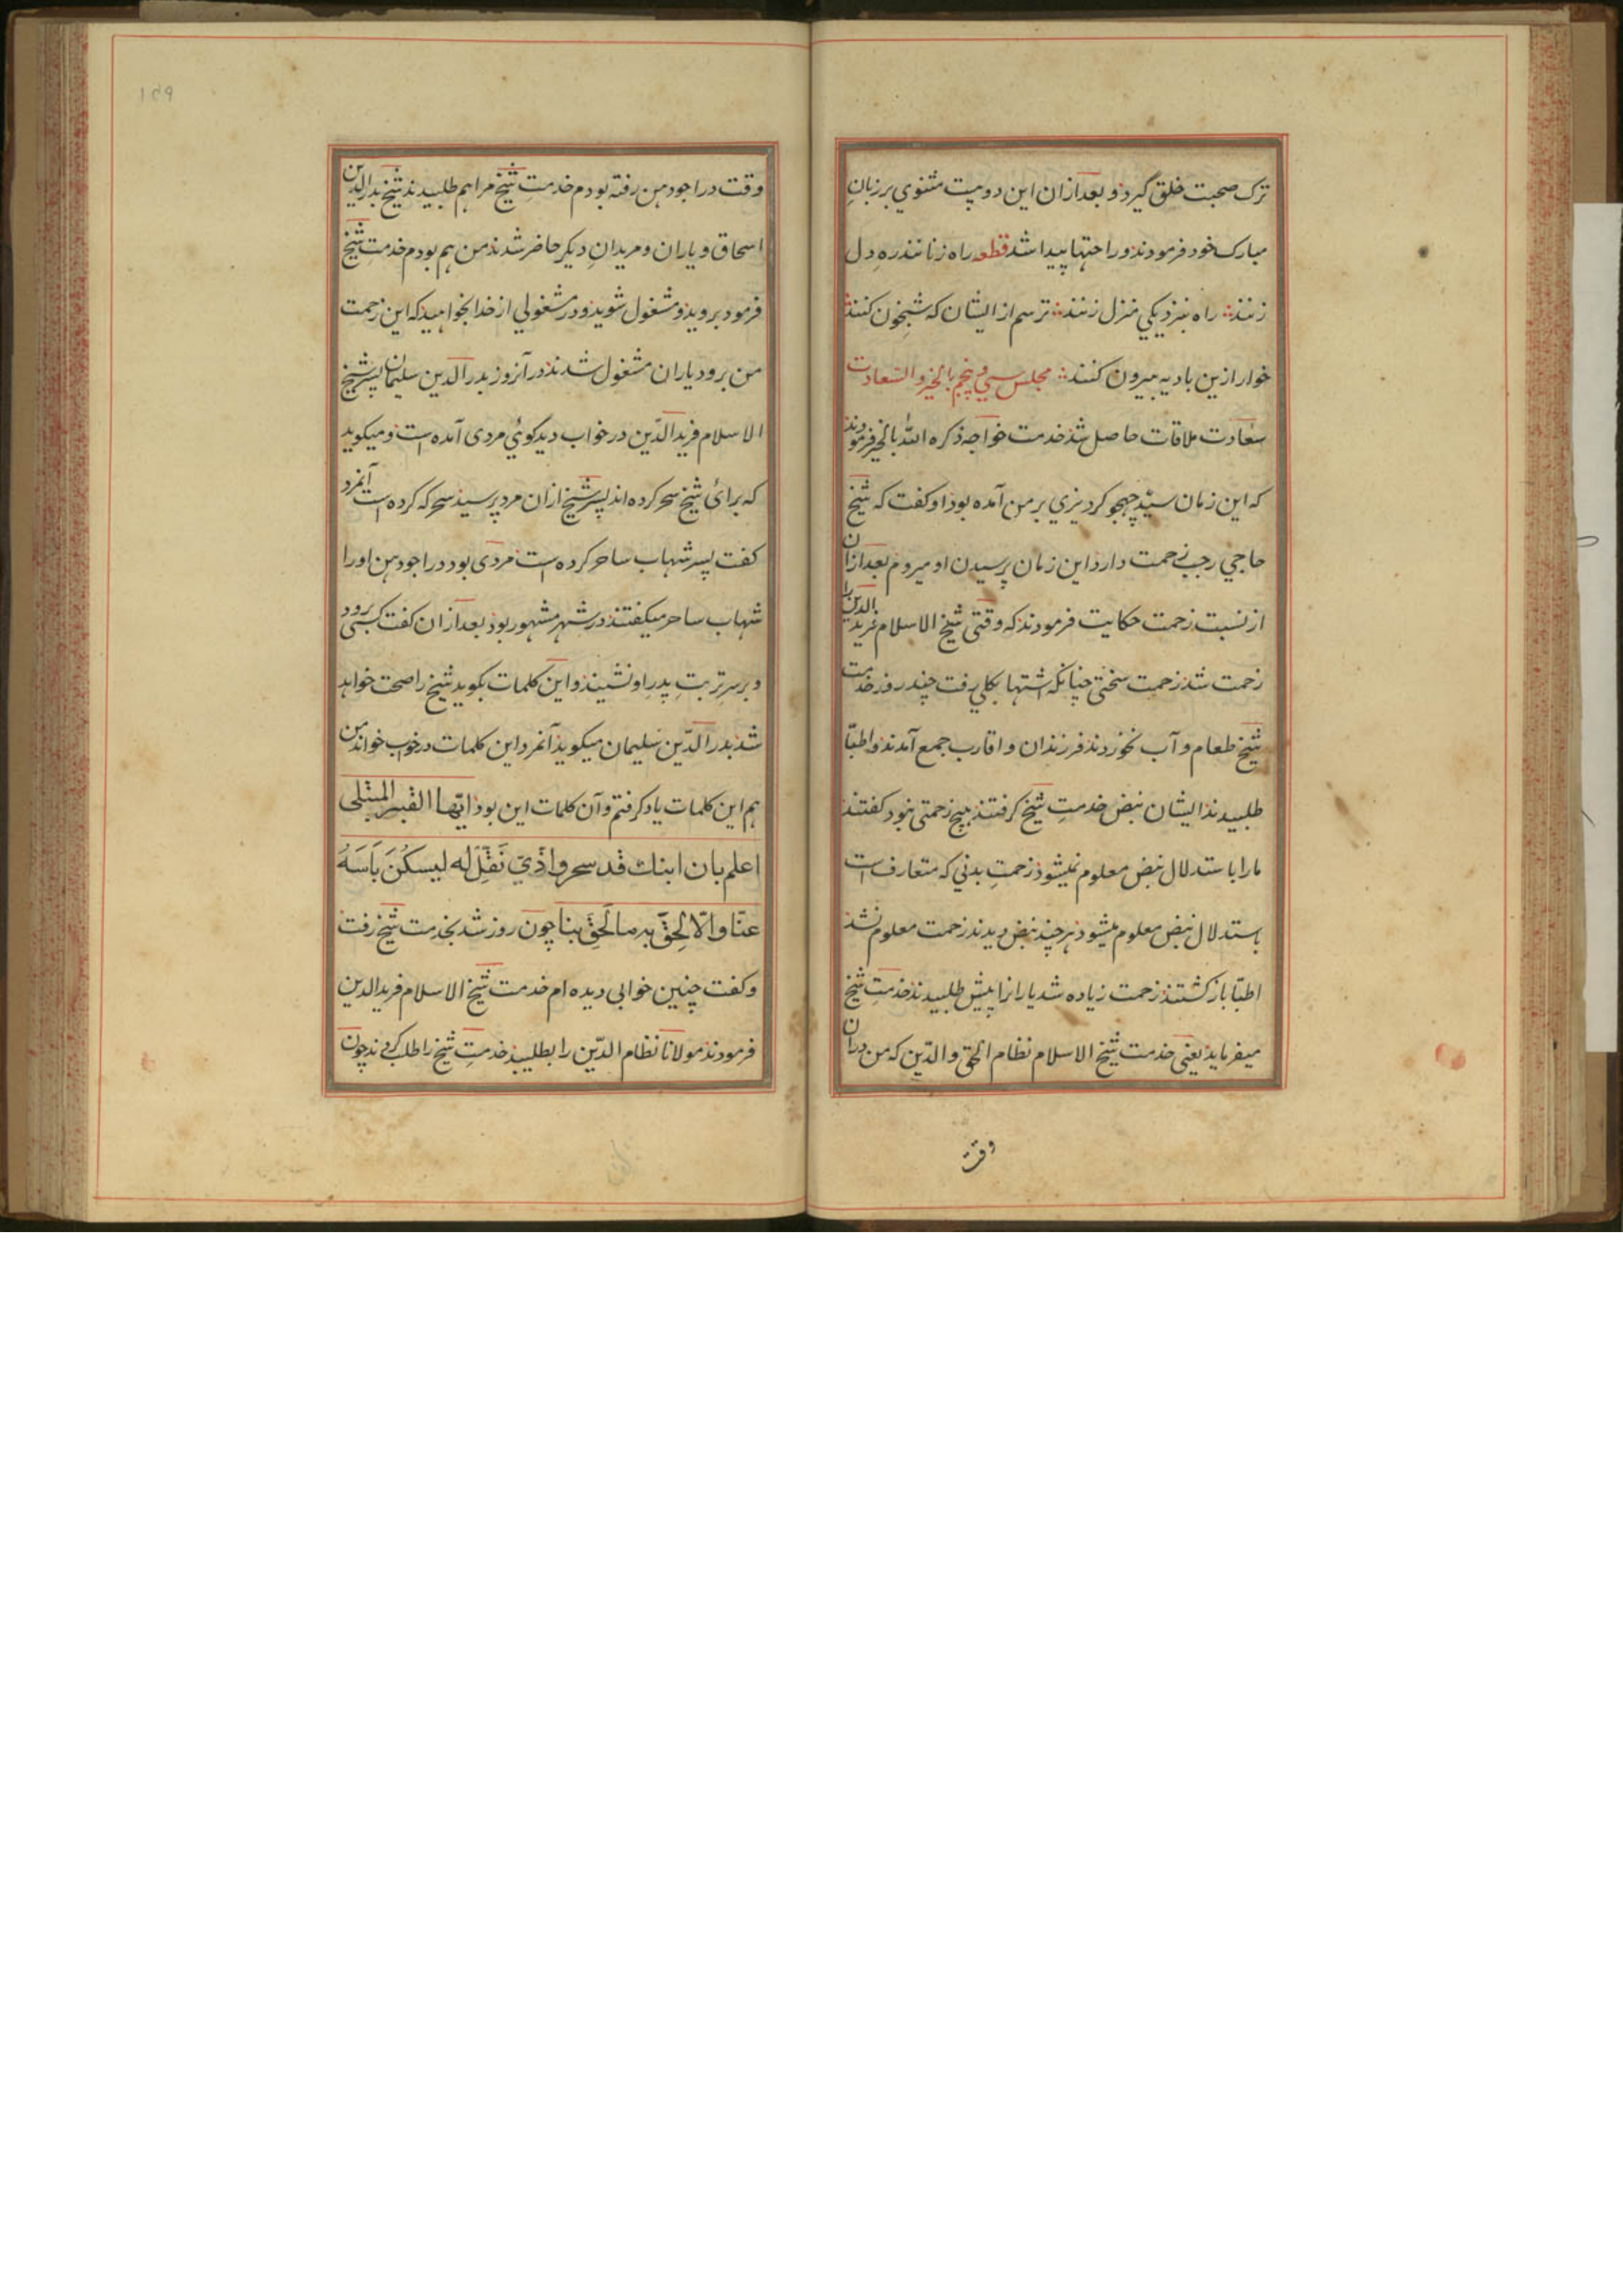 ترک صحبت خلق گیرد و بعد ازان این دو بیت مثنوی بر زبانِ
مبارک خود فرمودند و راحتها پیدا شد قطعه راه زنانند رهِ دل
زنند راه بنزدیکی منزل زنند ترسم از ایشان که شبیخون کنند
خوار ازین بادیه بیرون کنند مجلس سی و پنجم بالخیر و السعادت
سعادت ملاقات حاصل شد خدمت خواجه ذکره الله بالخیر فرمودند
که این زمان سید چهجو کردیزی بر من آمده بود او کفت که شیخ
حاجی رجب زحمت دارد این زمان پرسیدن او میروم بعد ازان
از نسبت زحمت حکایت فرمودند که وقتی شیخ الاسلام فرید الدین را
زحمت شد زحمت سختی چنانکه اشتها بکلی رفت چند روز خدمت
شیخ طعام و آب نخوردند فرزندان و اقارب جمع آمدند و اطبّا
طلبیدند ایشان نبض خدمتِ شیخ کرفتند هیچ زحمتی نبود کفتند
ما را باستدلال نبض معلوم نمیشود زحمتِ بدنی که متعارف است
باستدلال نبض معلوم میشود هر چند نبض دیدند زحمت معلوم نشد
اطبّا باز کشتند زحمت زیاده شد یارانرا پیش طلبیدند خدمتِ شیخ
میفرماید یعنی خدمت شیخ الاسلام نظام الحق و الدّین که من دران
وقت
وقت در اجودهن رفته بودم خدمتِ شیخ مرا هم طلبیدند شیخ بدر الدین
اسحاق و یاران و مریدانِ دیکر حاضر شدند من هم بودم خدمتِ شیخ
فرمود بروید و مشغول شوید و در مشغولی از خدا بخواهید که این زحمت
من برود یاران مشغول شدند در آنروز بدر الدین سلیمان پسر شیخ
الاسلام فرید الدّین در خواب دید کوئی مردی آمده است و میکوید
که برائ شیخ سحر کرده اند پسر شیخ ازان مرد پرسید سحر که کرده است آنمرد
کفت پسر شهاب ساحر کرده است مردی بود در اجودهن او را
شهاب ساحر میکفتند در شهر مشهور بود بعد ازان کفت کسی برود
و بر سرِ تربتِ پدرِ او نشیند و این کلمات بکوید شیخ را صحت خواهد
شد بدر الدّین سلیمان میکوید آنمرد این کلمات در خواب خواند من
هم این کلمات یاد کرفتم و آن کلمات این بود ایّها القبر المبتلی
اعلم بان ابنك قد سحر واذی فقل له لیسکن باسه
عنّا والّا لحق به ما لحق بنا چون روز شد بخدمت شیخ رفت
و کفت چنین خوابی دیده ام خدمت شیخ الاسلام فرید الدین
فرمودند مولانا نظام الدّین را بطلبید خدمتِ شیخ را طلب کردند چون